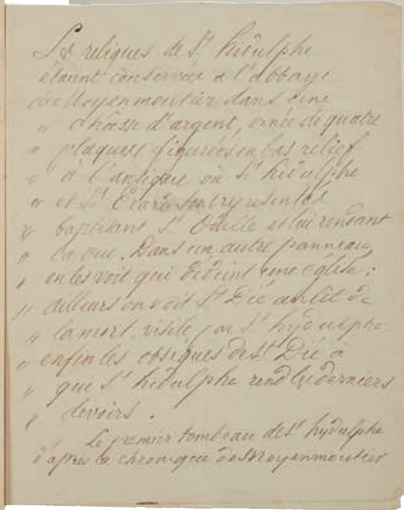 Les reliques de St hidulphe
étaient conservées a l'abbaye
de Moyenmoutier dans une
" châsse d'argent, ornée de quatre
" plaques figurées en bas relief
" à l'antique où St hidulphe
" et St Erard sont representés
" baptisant Ste Odille et lui rendant
" la vue. Dans un autre panneau,
" on les voit qui dédient une église;
" ailleurs on voit St Dié au lit de
" la mort, visité par St hydulphe
" enfin les obsèques de St Dié à
" que St hidulphe rend les derniers
" devoirs.
Le premier tombeau de St hydulphe
d'après la chronique de Moyenmoutier